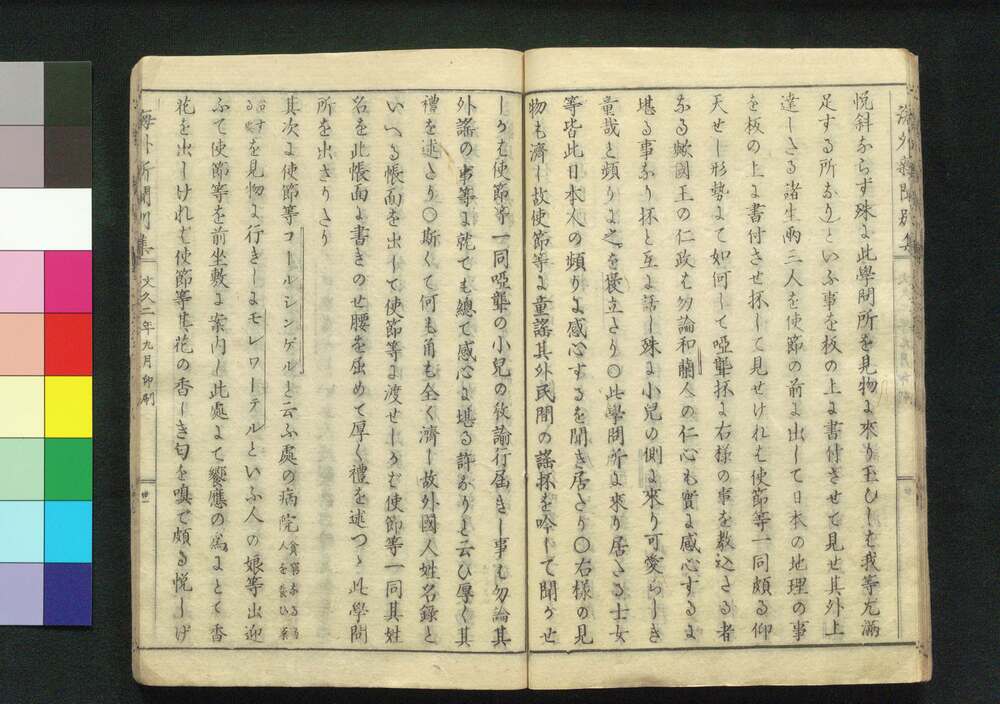 海外新聞別集
悦斜ならず殊に此學問所を見物に來り玉ひしも我等尤滿
足する所なりといふ事を板の上に書付させて見せ其外上
達しさる諸生両三人を使節の前に出して日本の地理の事
を板の上に書付させ抔して見せけれは使節等一同頗る仰
天せし形勢にて如何して啞聾抔に右樣の事を教込さる者
なる歟國王の仁政も勿論和蘭人の仁心も實に感心するに
堪る事なり抔と互に話し殊に小兒の側に來り可愛らしき
童哉と頻りに之を誉立さり〇此學問所に來り居さる士女
等皆此日本人の頻りに感心するを聞き居さり〇右樣の見
物も濟し故使節等に童謠其外民間の謠抔を吟して聞かせ
しかは使節等一同啞聾の小兒の攸諭行屆きし事も勿論其
外謠の事等に就ても總て感心に堪る許なりと云ひ厚く其
禮を述さり〇斯くて何も角も全く濟し故外國人姓名錄と
いへる帳面を出して使節等に渡せしかは使節等一同其姓
名を此帳面に書きのせ腰を屈めて厚く禮を述つゝ此學問
所を出さりさり
其次に使節等コールシンゲルと云ふ處の病院貧窮なる
人を養ひ療
治する處を見物に行きしにモレワーテルといふ人の娘等出迎
ふて使節等を前坐敷に案内し此處にて饗應の爲にとて香
花を出しけれは使節等其花の香しき匂を嗅て頗る悦しげ
海外新聞別集
文久二年九月印刷